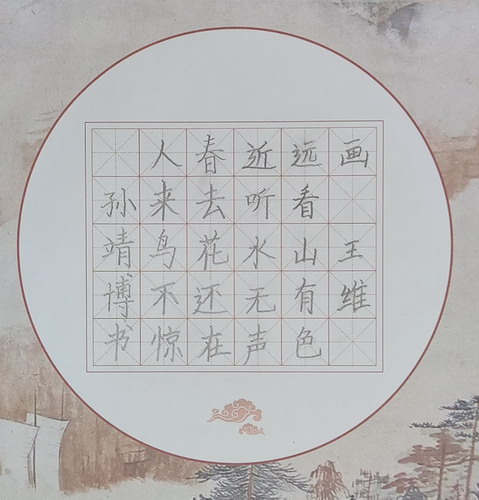 画
王维
远看山有色
近听水无声
春去花还在
人来鸟不惊
孙靖博书